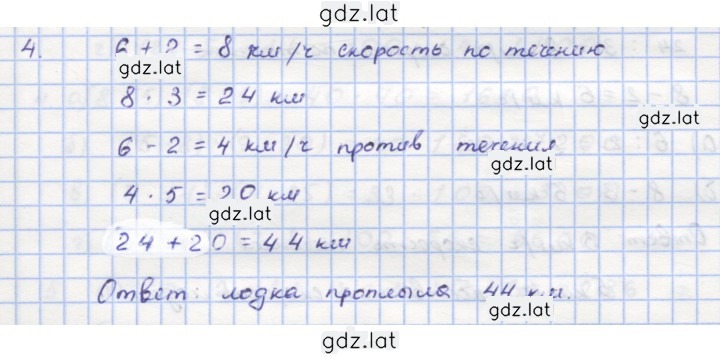 gdz.lat
4. 6 + 2 = 8 км/ч скорость по течению
gdz.lat
8 · 3 = 24 км
gdz.lat
6 - 2 = 4 км/ч против течения
gdz.lat
4 · 5 = 20 км
gdz.lat
24 + 20 = 44 км
Ответ: лодка проплыла 44 км.
gdz.lat
gdz.lat